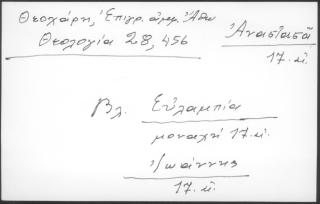 Θεοχάρη, Ἐπιγρ. Ἄθω
Θεολογία 28, 456
Ἀναστασᾶ
17. αἰ.
Βλ. Εὐλαμπία
μοναχή 17. αἰ.
Ἰωάννης
17. αἰ.